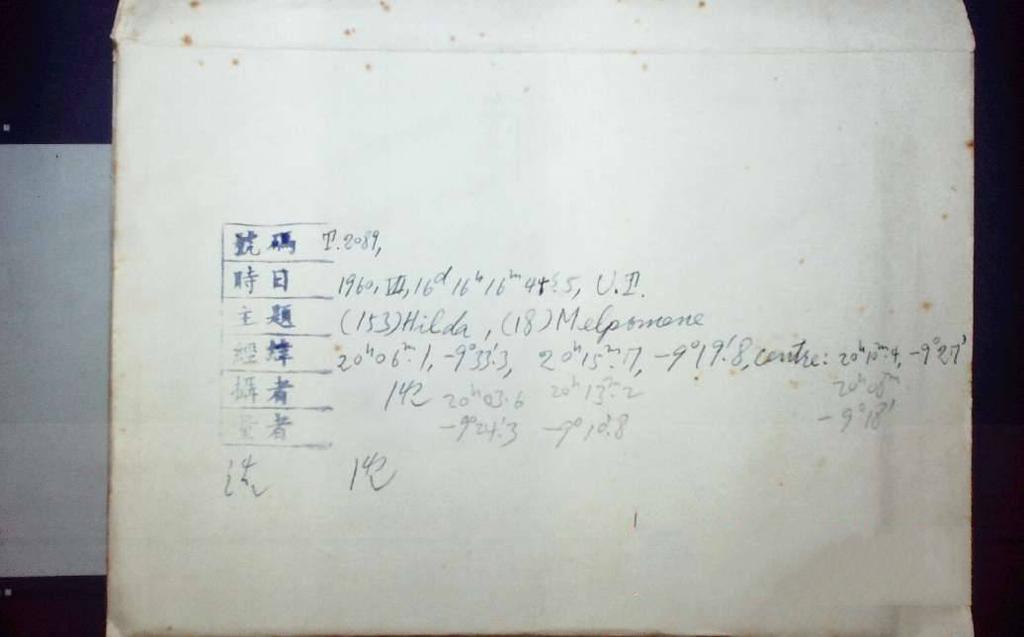 號碼 T.2089,
時日 1960, VII, 16ᵈ 16ʰ 16ᵐ 44ˢ.5, U.T.
主題 (153) Hilda, (18) Melpomene
經緯 20ʰ06ᵐ.1, -9°33'.3, 20ʰ15ᵐ.7, -9°19'.8, centre: 20ʰ10ᵐ.4, -9°27'
攝者 20ʰ03.6 20ʰ13ᵐ.2 20ʰ08ᵐ
量者 -9°24'.3 -9°10'.8 -9°18'
洗